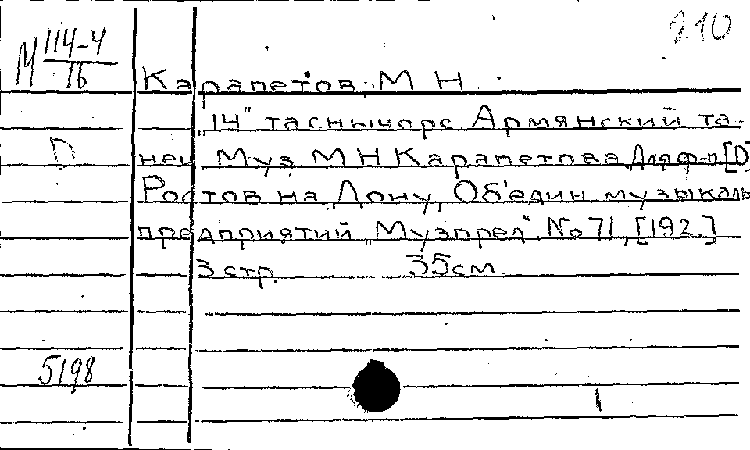 М 114-4/16
210
Карапетов, М Н.
„14" таснычорс Армянский та-
D
нец Муз М Н Карапетова Для ф-п [D]
Ростов на Дону, Об'един музыкаль
предприятий „Музпред" No 71, [192.]
3 стр. 35 см
5198
1